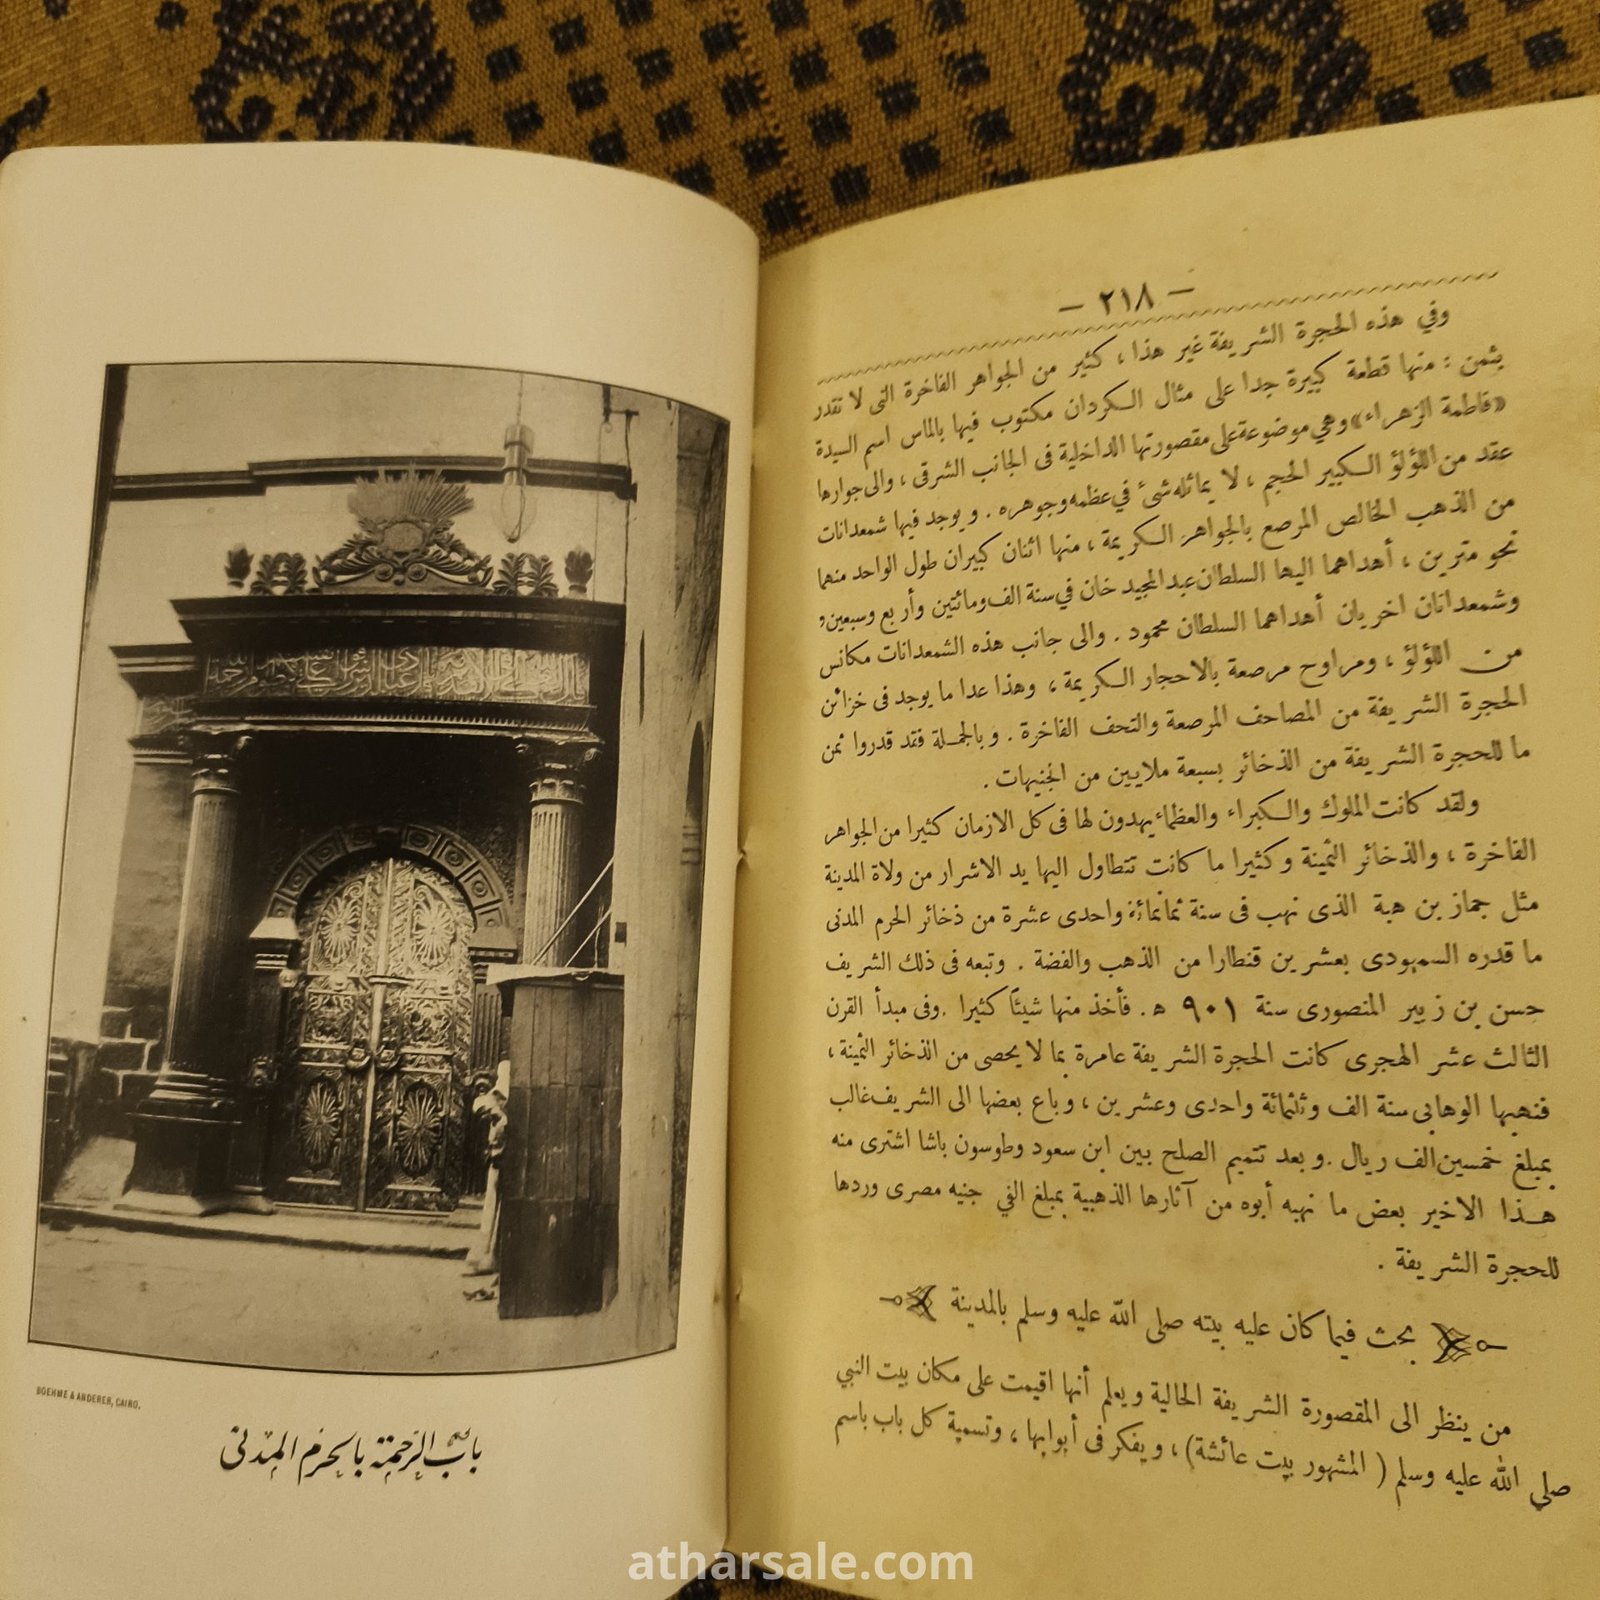 — ٢١٨ —
وفي هذه الحجرة الشريفة غير هذا، كثير من الجواهر الفاخرة التى لا تقدر
بثمن : منها قطعة كبيرة جدا على مثال الكردان مكتوب فيها بالماس اسم السيدة
«فاطمة الزهراء» وهي موضوعة على مقصورتها الداخلية فى الجانب الشرقى ، والى جوارها
عقد من اللؤلؤ الكبير الحجم ، لا يماثله شئ في عظمه وجوهره . ويوجد فيها شمعدانات
من الذهب الخالص المرصع بالجواهر الكريمة ، منها اثنان كبيران طول الواحد منهما
نحو مترين ، أهداهما اليها السلطان عبد المجيد خان في سنة الف ومائتين وأربع وسبعين,
وشمعدانان اخريان أهداهما السلطان محمود . والى جانب هذه الشمعدانات مكانس
من اللؤلؤ ، ومراوح مرصعة بالاحجار الكريمة ، وهذا عدا ما يوجد فى خزائن
الحجرة الشريفة من المصاحف المرصعة والتحف الفاخرة . وبالجملة فقد قدروا ثمن
ما للحجرة الشريفة من الذخائر بسبعة ملايين من الجنيهات .
ولقد كانت الملوك والكبراء والعظماء يهدون لها فى كل الازمان كثيرا من الجواهر
الفاخرة ، والذخائر الثمينة وكثيرا ما كانت تتطاول اليها يد الاشرار من ولاة المدينة
مثل جماز بن هبة الذى نهب فى سنة ثمانمائة واحدى عشرة من ذخائر الحرم المدنى
ما قدره السمهودى بعشرين قنطارا من الذهب والفضة . وتبعه فى ذلك الشريف
حسن بن زبير المنصورى سنة ٩٠١ ه . فأخذ منها شيئاً كثيرا . وفى مبدأ القرن
الثالث عشر الهجرى كانت الحجرة الشريفة عامرة بما لا يحصى من الذخائر الثمينة ،
فنهبها الوهابى سنة الف وثلثمائة واحدى وعشرين ، وباع بعضها الى الشريف غالب
بمبلغ خمسين الف ريال . وبعد تتميم الصلح بين ابن سعود وطوسون باشا اشترى منه
هذا الاخير بعض ما نهبه أبوه من آثارها الذهبية بمبلغ الفي جنيه مصرى وردها
للحجرة الشريفة .
بحث فيما كان عليه بيته صلى الله عليه وسلم بالمدينة
من ينظر الى المقصورة الشريفة الحالية ويعلم أنها اقيمت على مكان بيت النبي
صلى الله عليه وسلم ( المشهور ببيت عائشة ) ، ويفكر فى أبوابها ، وتسمية كل باب باسم
BOEHME & ANDERER, CAIRO.
باب الرحمة بالحرم المدنى
atharsale.com